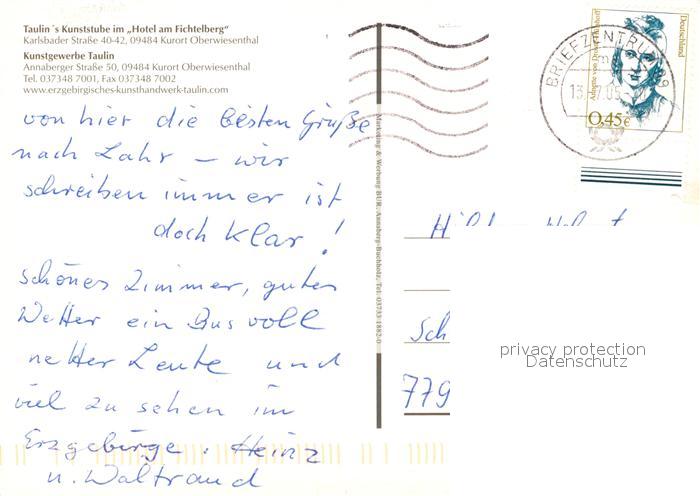 Taulin´s Kunststube im „Hotel am Fichtelberg“
Karlsbader Straße 40-42, 09484 Kurort Oberwiesenthal
Kunstgewerbe Taulin
Annaberger Straße 50, 09484 Kurort Oberwiesenthal
Tel. 037348 7001, Fax 037348 7002
www.erzgebirgisches-kunsthandwerk-taulin.com
von hier die besten Grüße
nach Lahr – wir
schreiben immer ist
doch klar!
schönes Zimmer, gutes
Wetter ein Bus voll
netter Leute und
viel zu sehen im
Erzgebirge. Heinz
u. Waltraud
Marketing & Werbung BUR, Annaberg-Buchholz, Tel. 03733-1882-0
BRIEFZENTRUM 09
Deutschland
0,45€
Sch
779
privacy protection
Datenschutz